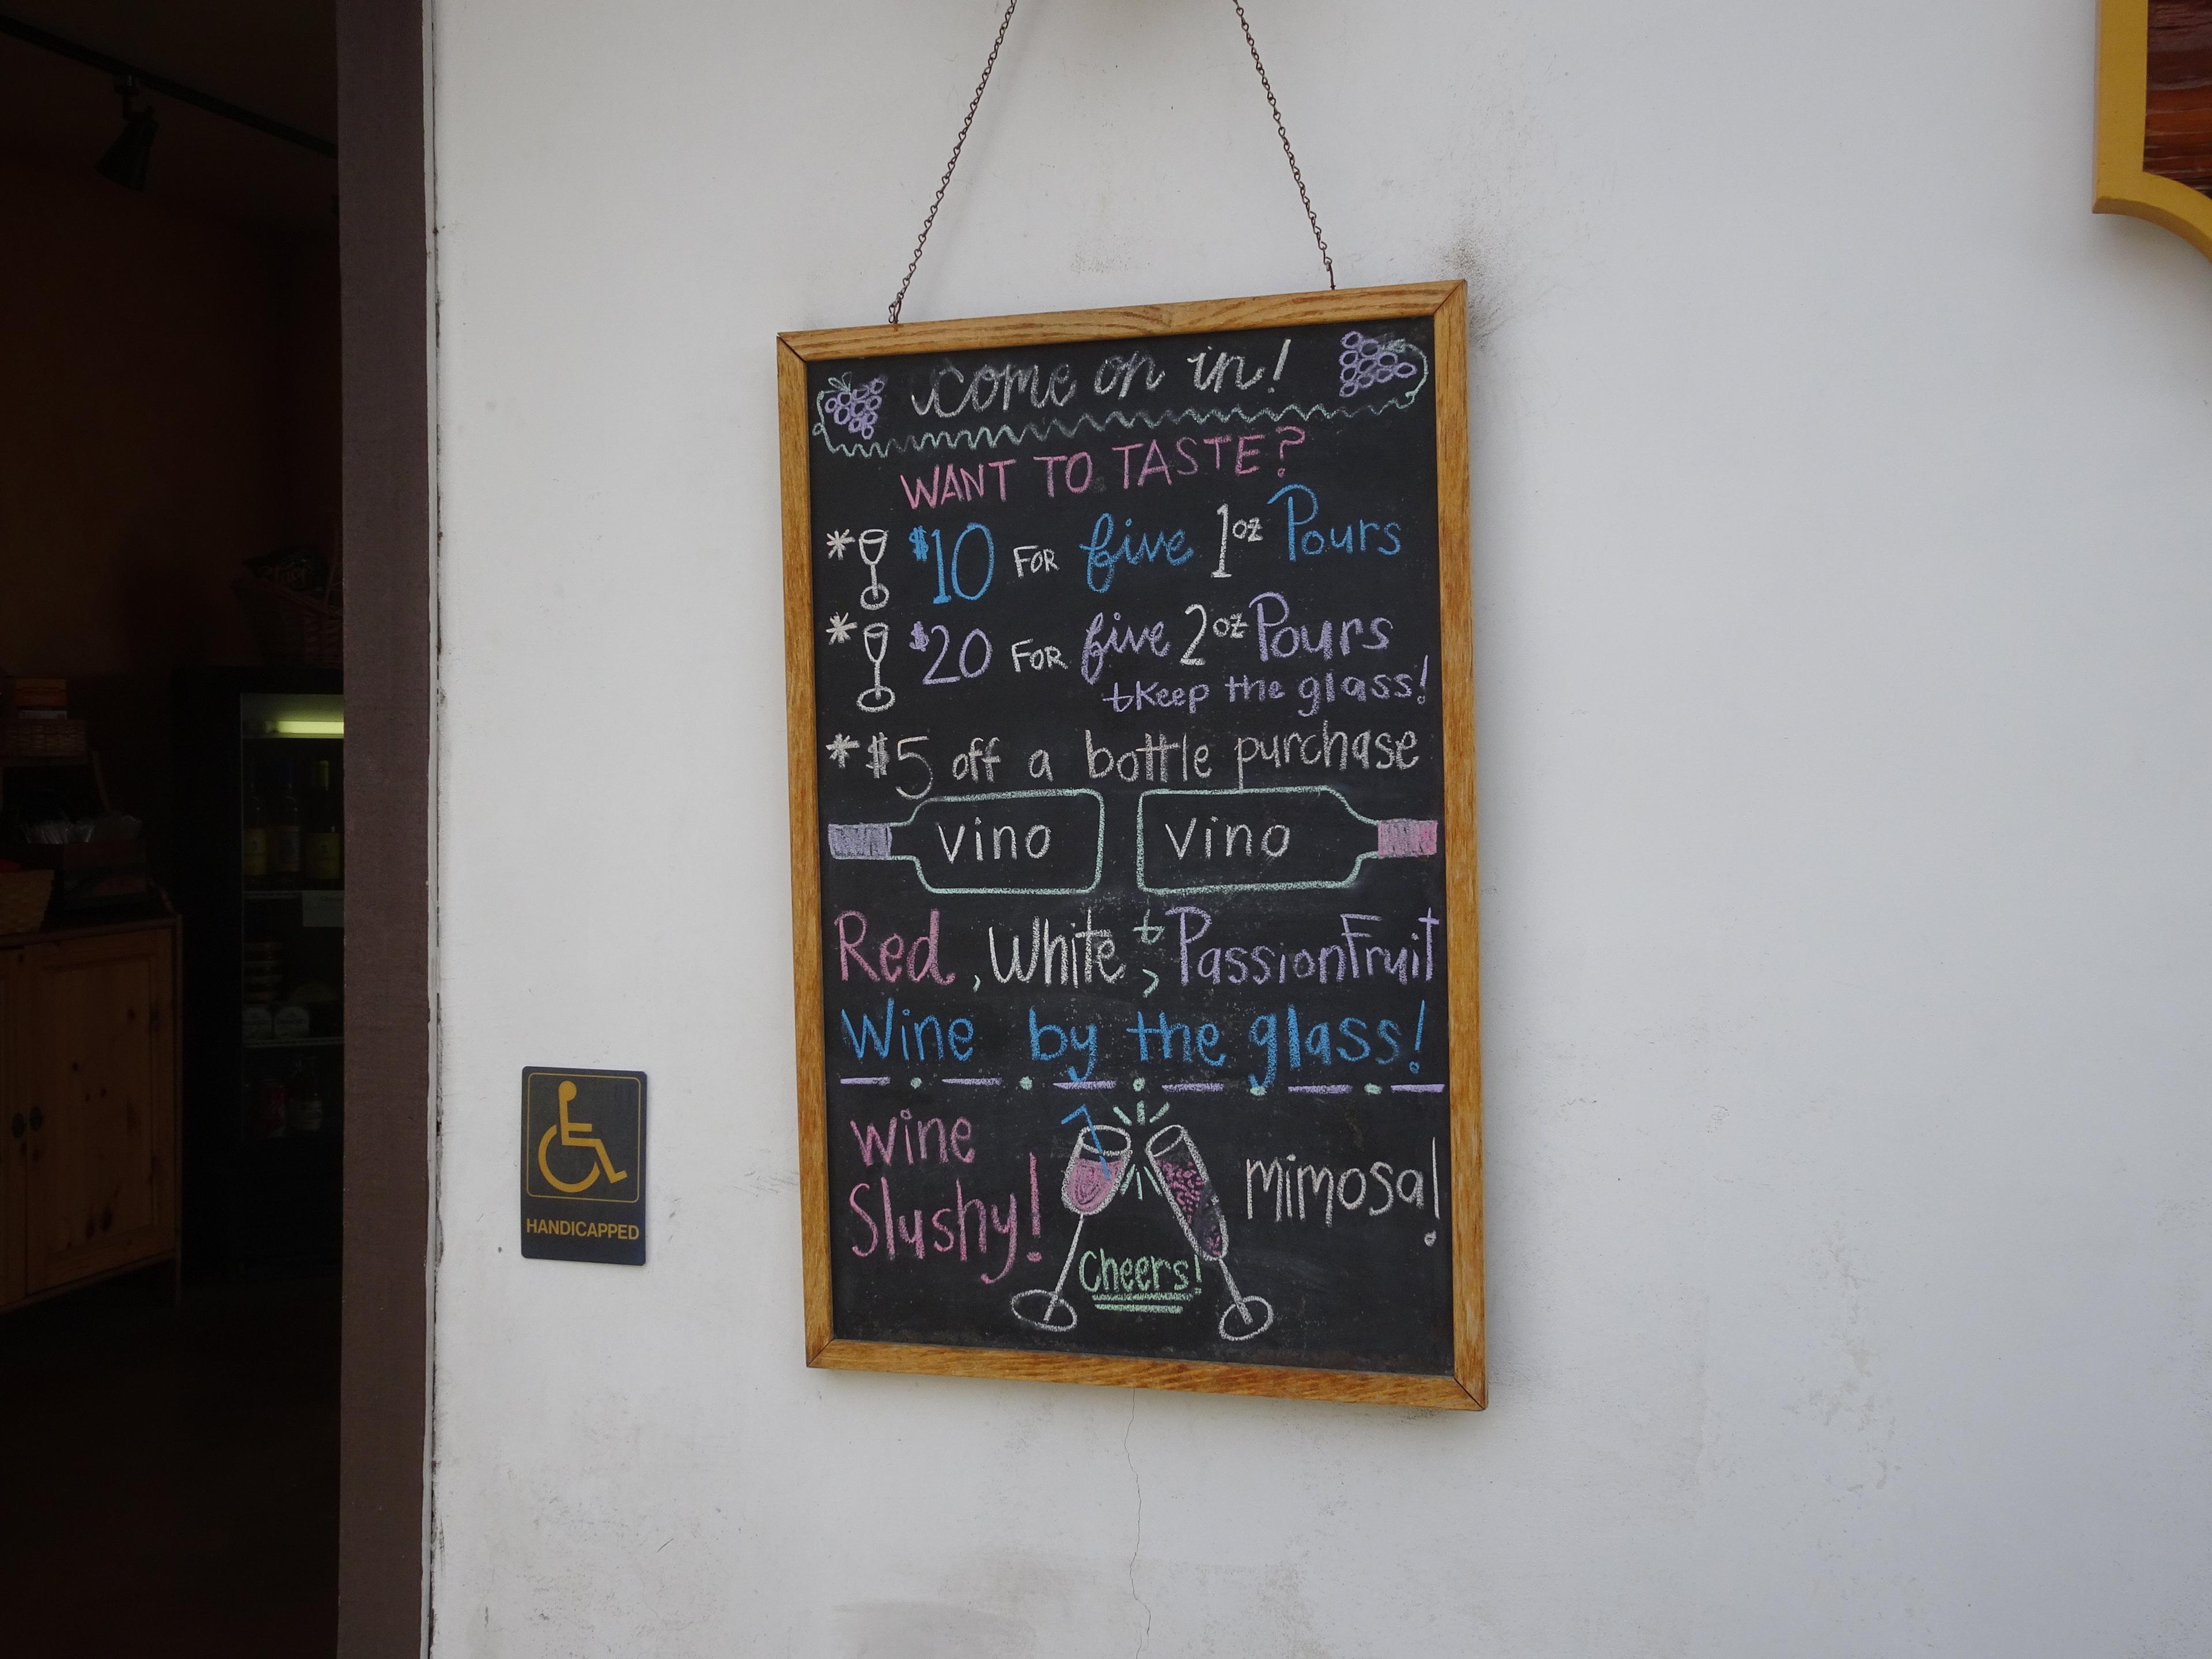 come on in!
WANT TO TASTE?
* $10 FOR five 1oz Pours
* $20 FOR five 2oz Pours
+ Keep the glass!
* $5 off a bottle purchase
vino vino
Red, White, + PassionFruit
Wine by the glass!
wine
Slushy!
mimosa!
Cheers!
HANDICAPPED